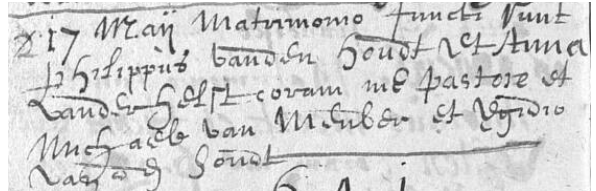 17 Maij Matrimonio Juncti sunt
Philippus vanden Houdt et Anna
Vanderhelst coram me pastore et
Michaele van Meuber et Egidio
Vanden Houdt